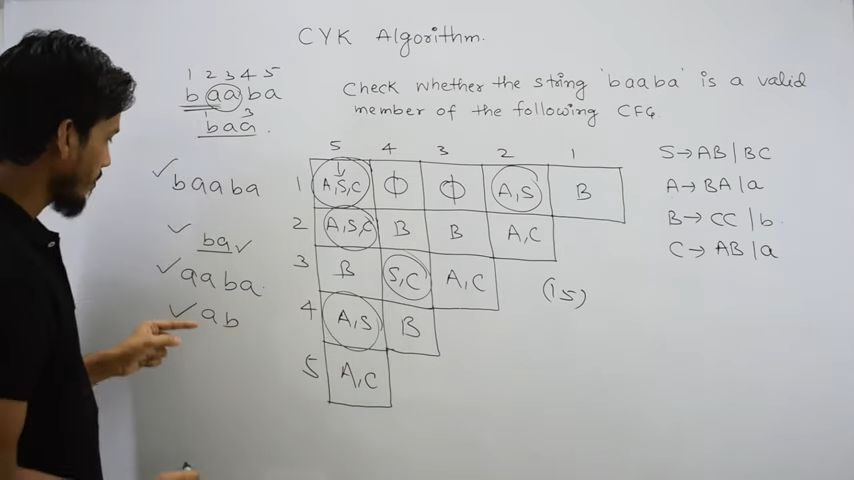 CYK Algorithm.
1 2 3 4 5
b aa ba
1 3
baa.
Check whether the string 'baaba' is a valid
member of the following CFG.
5 4 3 2 1
1 A,S,C ϕ ϕ A,S B
2 A,S,C B B A,C
3 B S,C A,C
4 A,S B
5 A,C
(15)
S→AB|BC
A→BA|a
B→CC|b.
C→AB|a
✓baaba
✓ ba✓
✓aaba.
✓ab